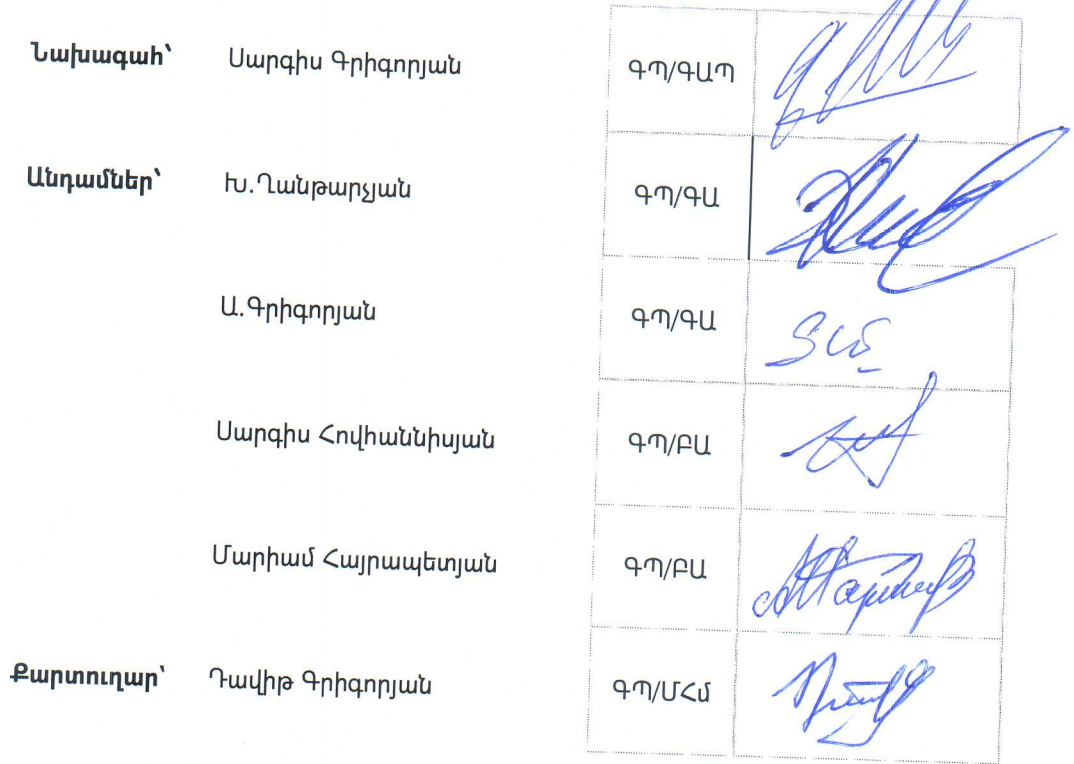 Նախագահ՝ Սարգիս Գրիգորյան ԳՊ/ԳԱՊ
Անդամներ՝ Խ.Ղանթարչյան ԳՊ/ԳԱ
Ա.Գրիգորյան ԳՊ/ԳԱ
Սարգիս Հովհաննիսյան ԳՊ/ԲԱ
Մարիամ Հայրապետյան ԳՊ/ԲԱ
Քարտուղար՝ Դավիթ Գրիգորյան ԳՊ/ՄՀմ